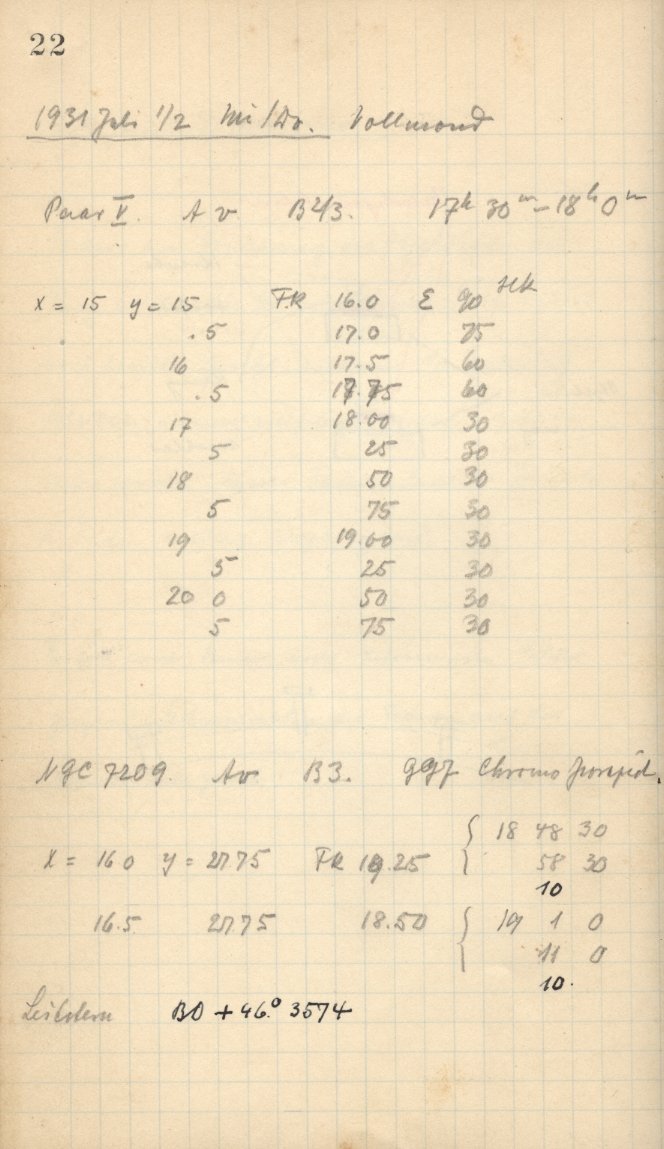 22
1931 Juli 1/2 Mi/Do. Vollmond
Paar V. Av B2/3. 17h 30m – 18h 0m
x = 15 y = 15 FR 16.0 ε 90 sek
.5 17.0 75
16 17.5 60
.5 17.75 60
17 18.00 30
5 25 30
18 50 30
5 75 30
19 19.00 30
5 25 30
20 0 50 30
5 75 30
NGC 7209. Av B3. Chromo
x = 16 0 y = 27.75 FR 18.25 { 18 48 30
58 30
10
16.5 27.75 18.50 { 19 1 0
11 0
10.
Leitstern BD + 46.° 3574